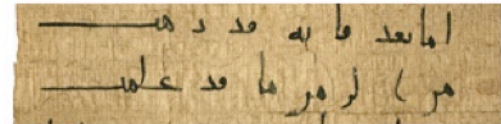 اما بعد فانه قد ذهب
من الزمن ما قد علمت